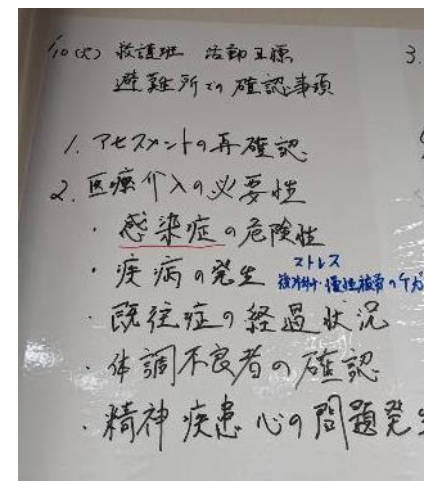 1/10(火) 救護班 活動目標
避難所での確認事項
3.
1. アセスメントの再確認
2. 医療介入の必要性
・感染症の危険性
・疾病の発生
ストレス
・既往症の経過状況
・体調不良者の確認
・精神疾患 心の問題発生